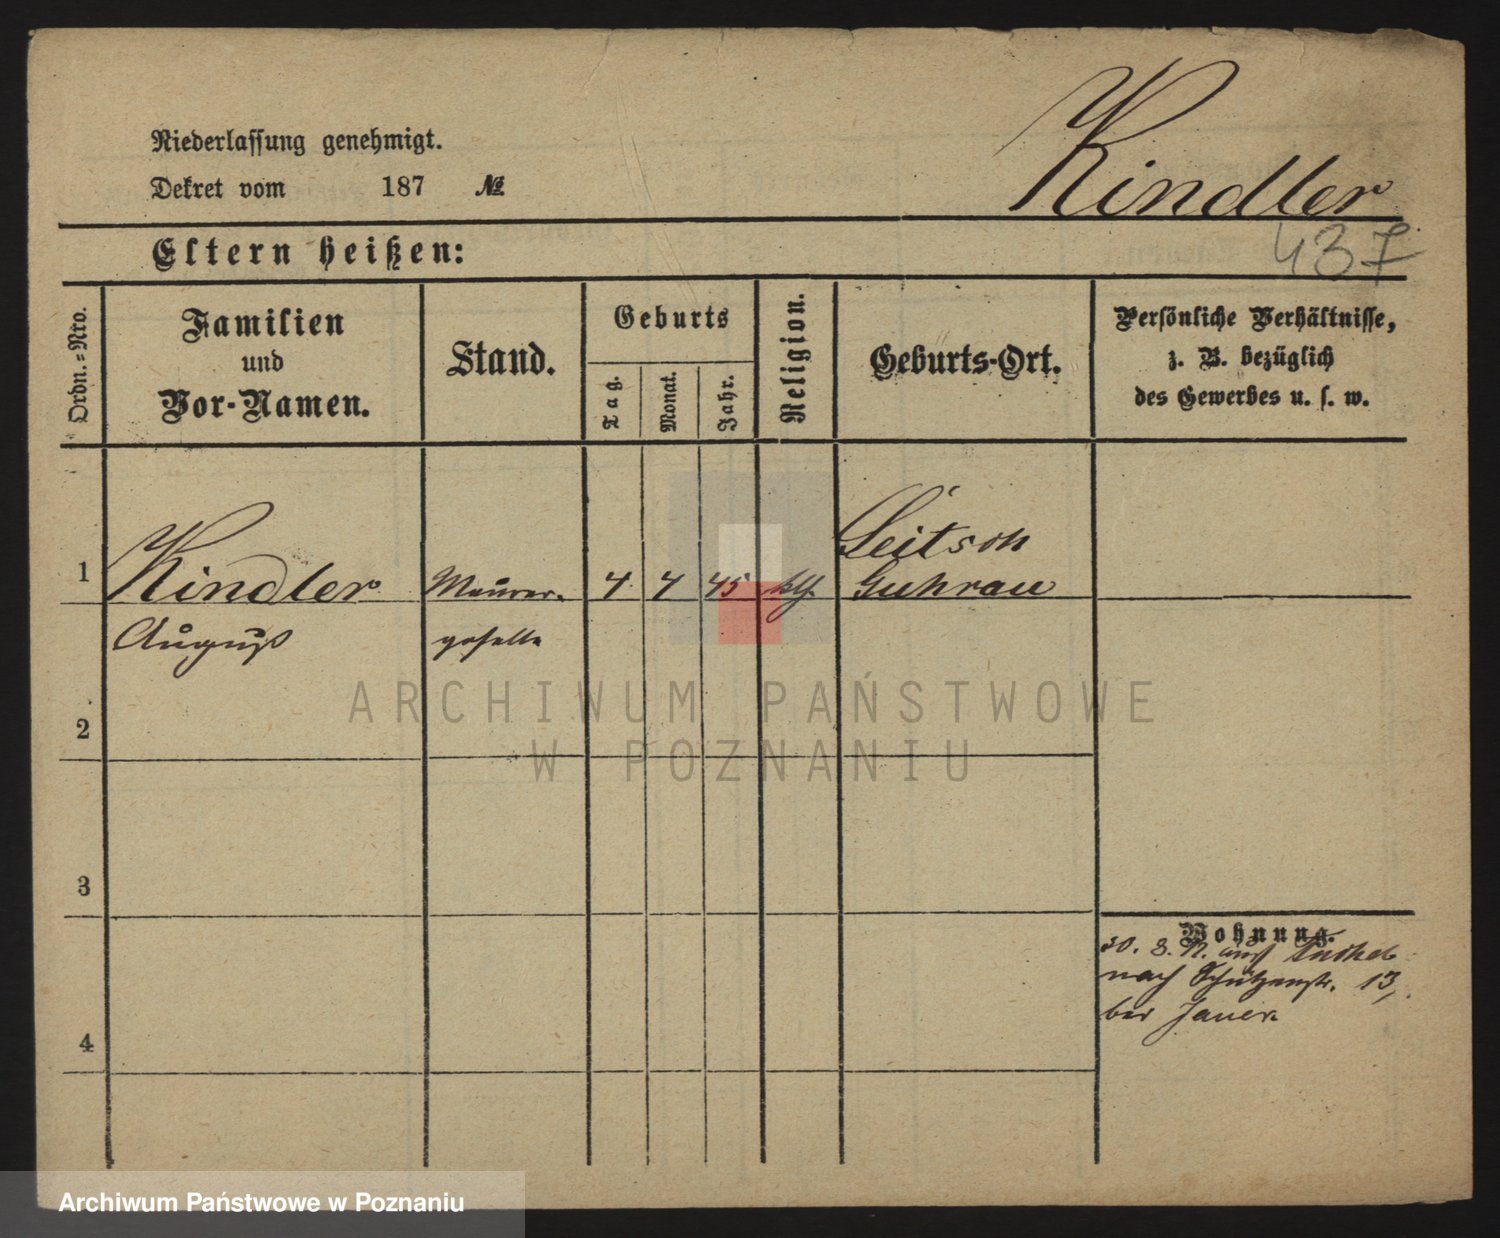 Niederlassung genehmigt.
Dekret vom 187 №
Kindler
437
Eltern heißen:
Ordn.=Nro.
Familien
und
Vor-Namen.
Stand.
Geburts
Tag.
Monat.
Jahr.
Religion.
Geburts-Ort.
Persönliche Verhältnisse,
z. B. bezüglich
des Gewerbes u. s. w.
1
Kindler
August
Maurer-
geselle
4. 4 45 kth.
Leitsch
Guhrau
2
3
4
Wohnung.
30. 8. 72. aus
nach Schützenstr. 13,
bei Jauer
ARCHIWUM PAŃSTWOWE
W POZNANIU
Archiwum Państwowe w Poznaniu